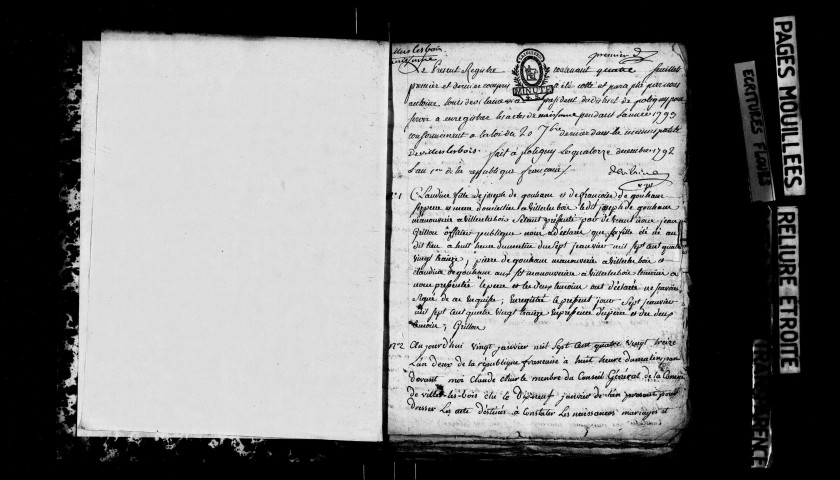 villers les bois
premier
Le Present Registre contenant quatre feuillets
premier et dernier compris a été cotté et paraphé par nous
MINUTE
president du district de poligny pour
servir a enregistrer les actes de naissance pendant l'année 1793
conformement a la loi du 20 7bre dernier dans la municipalité
de villerslesbois. fait à Poligny le quatorze decembre 1792
l'an 1er de la republique françoise
N° 1 Claudine fille de joseph de gouhenu et de francoise de gouhenu
ses pere et mere domicilies a villerslesbois ledit joseph de gouhenu
manouvrier a villerslesbois s'etant présenté par devant nous jean
Grillon officier publique nous a declaré que sa fille est né au
dit lieu a huit heure du matin du sept janvier mil sept cent quatre
vingt treize, pierre de gouhenu manouvrier a villerslesbois et
claudine de gouhenu aussi manouvrière a villerslesbois temoins a
nous presentée le pere et les deux temoins ont déclarés ne savoir
signé de ce requise, enregistré le présent jour sept janvier
mil sept cent quatre vingt treize en presence du pere et des deux
temoins, Grillon
N° 2 Aujourd'hui vingt janvier mil sept cent quatre vingt treize
L'an deux de la république francaise à huit heure du matin, par
devant moi claude clair le membre du Conseil Général de la Commune
de villers-les-bois elu le dixneuf janvier de l'an present pour
dresser les acte destinés à constater les naissances mariages et
PAGES MOUILLEES
ECRITURES FLOUES
RELIURE ETROITE
TRANSPARENCE